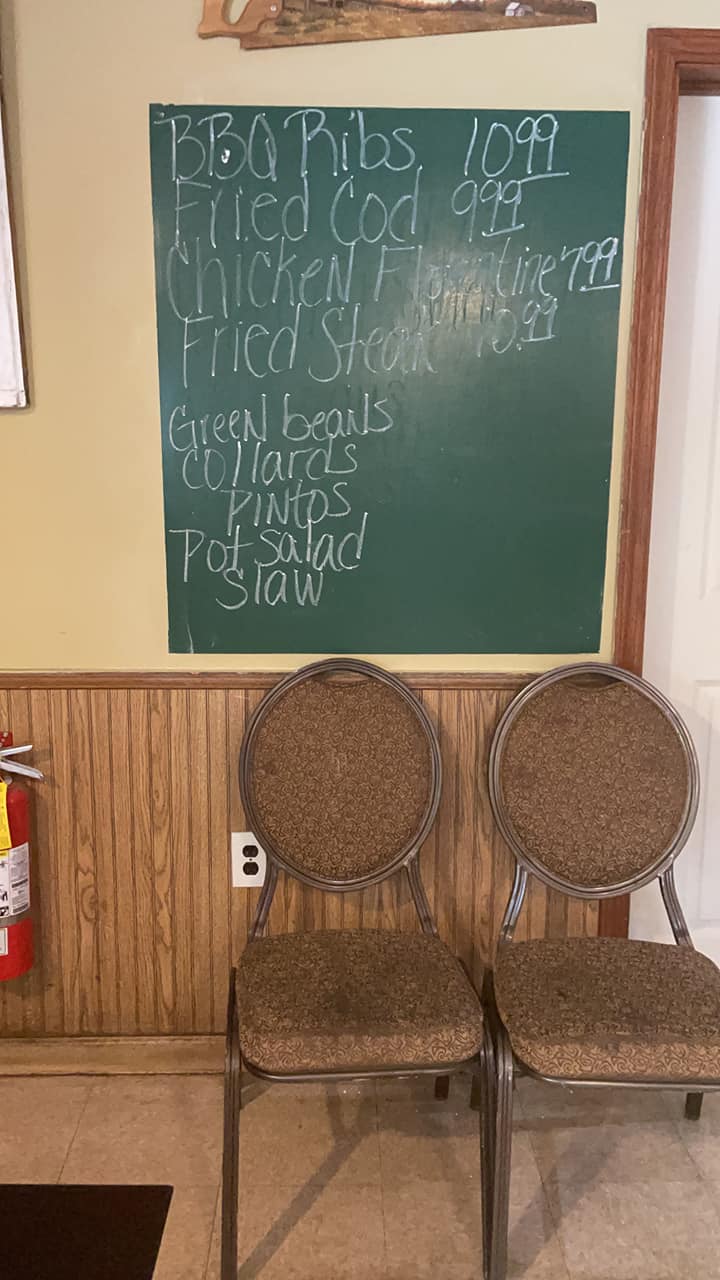 BBQ Ribs 10 99
Fried Cod 9 99
Chicken Florentine 7 99
Fried Steak 10.99
Green beans
collards
Pintos
Pot salad
Slaw